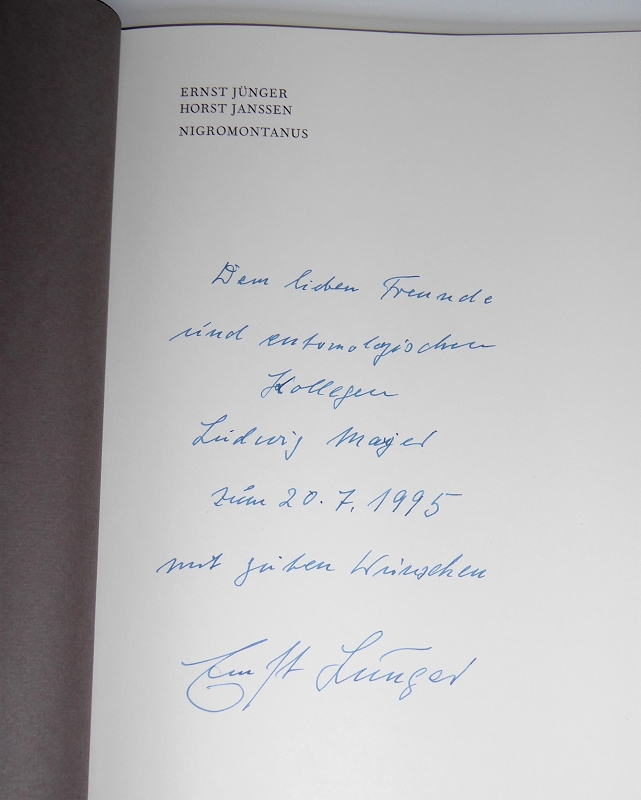 ERNST JÜNGER
HORST JANSSEN
NIGROMONTANUS
Dem lieben Freunde
und entomologischen
Kollegen
Ludwig Mayer
zum 20.7.1995
mit guten Wünschen
Ernst Jünger